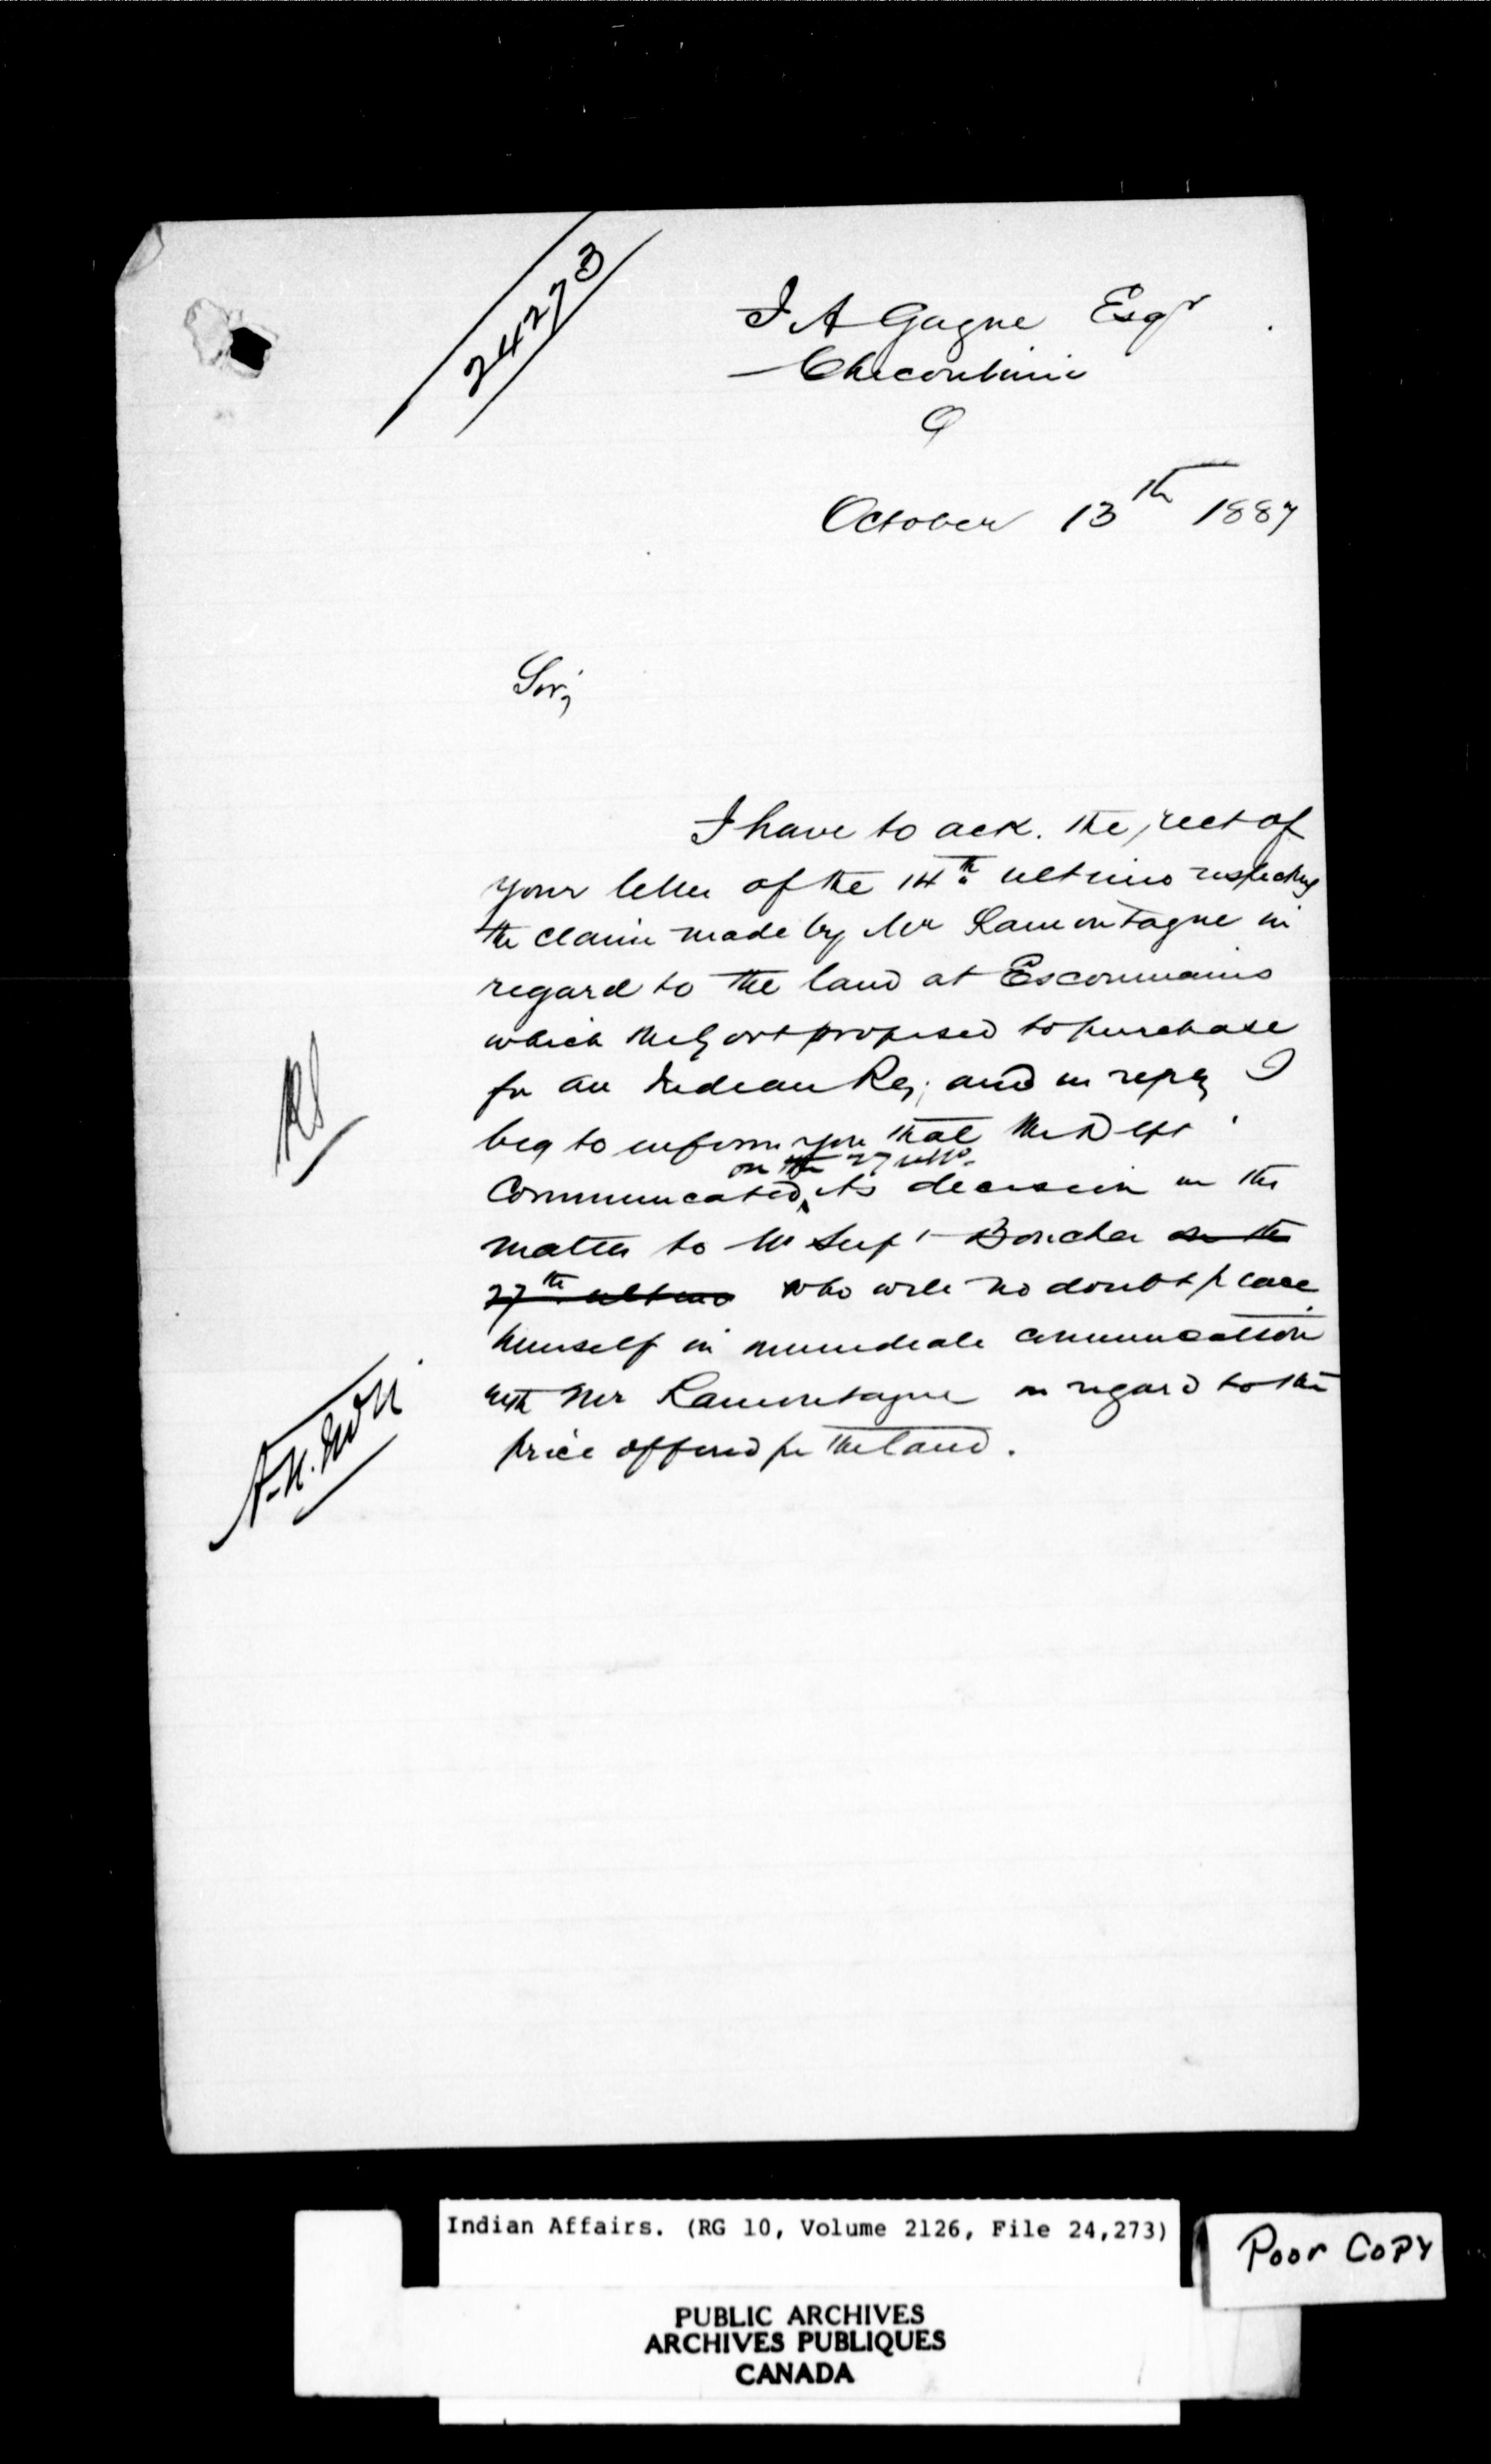 24273
J A Gagne Esqr
Checoutimi
Q
October 13th 1887
Sir,
I have to ack. the rect of
your letter of the 14th ultimo respecting
the claim made by Mr Lamontagne in
regard to the land at Escoumains
which the Govt proposed to purchase
for an Indian Res; and in reply I
beg to inform you that the Dept
on the 27 ulto
Communicated its decision in the
matter to Mr Supt Boucher on the
27th ultimo who will no doubt place
himself in immediate communication
with Mr Lamontagne in regard to the
price offered for the land.
Indian Affairs. (RG 10, Volume 2126, File 24,273)
Poor Copy
PUBLIC ARCHIVES
ARCHIVES PUBLIQUES
CANADA